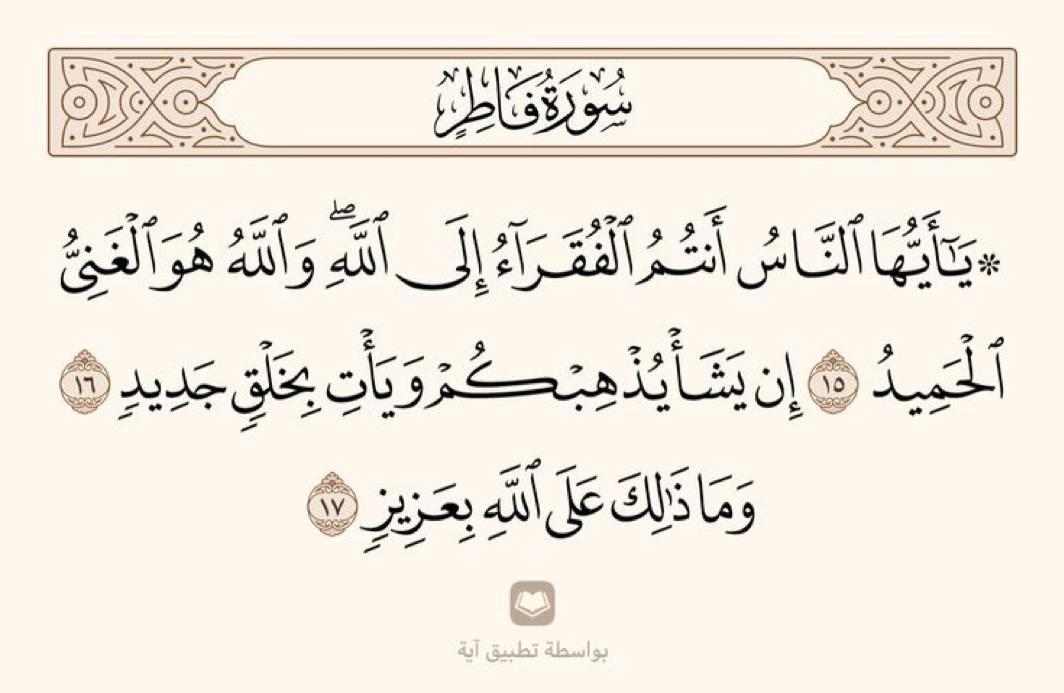 سُورَةُ فَاطِرٍ
* يَـٰٓأَيُّهَا ٱلنَّاسُ أَنتُمُ ٱلْفُقَرَآءُ إِلَى ٱللَّهِۖ وَٱللَّهُ هُوَ ٱلْغَنِىُّ
ٱلْحَمِيدُ ١٥ إِن يَشَأْ يُذْهِبْكُمْ وَيَأْتِ بِخَلْقٍ جَدِيدٍ ١٦
وَمَا ذَٰلِكَ عَلَى ٱللَّهِ بِعَزِيزٍ ١٧
بواسطة تطبيق آية